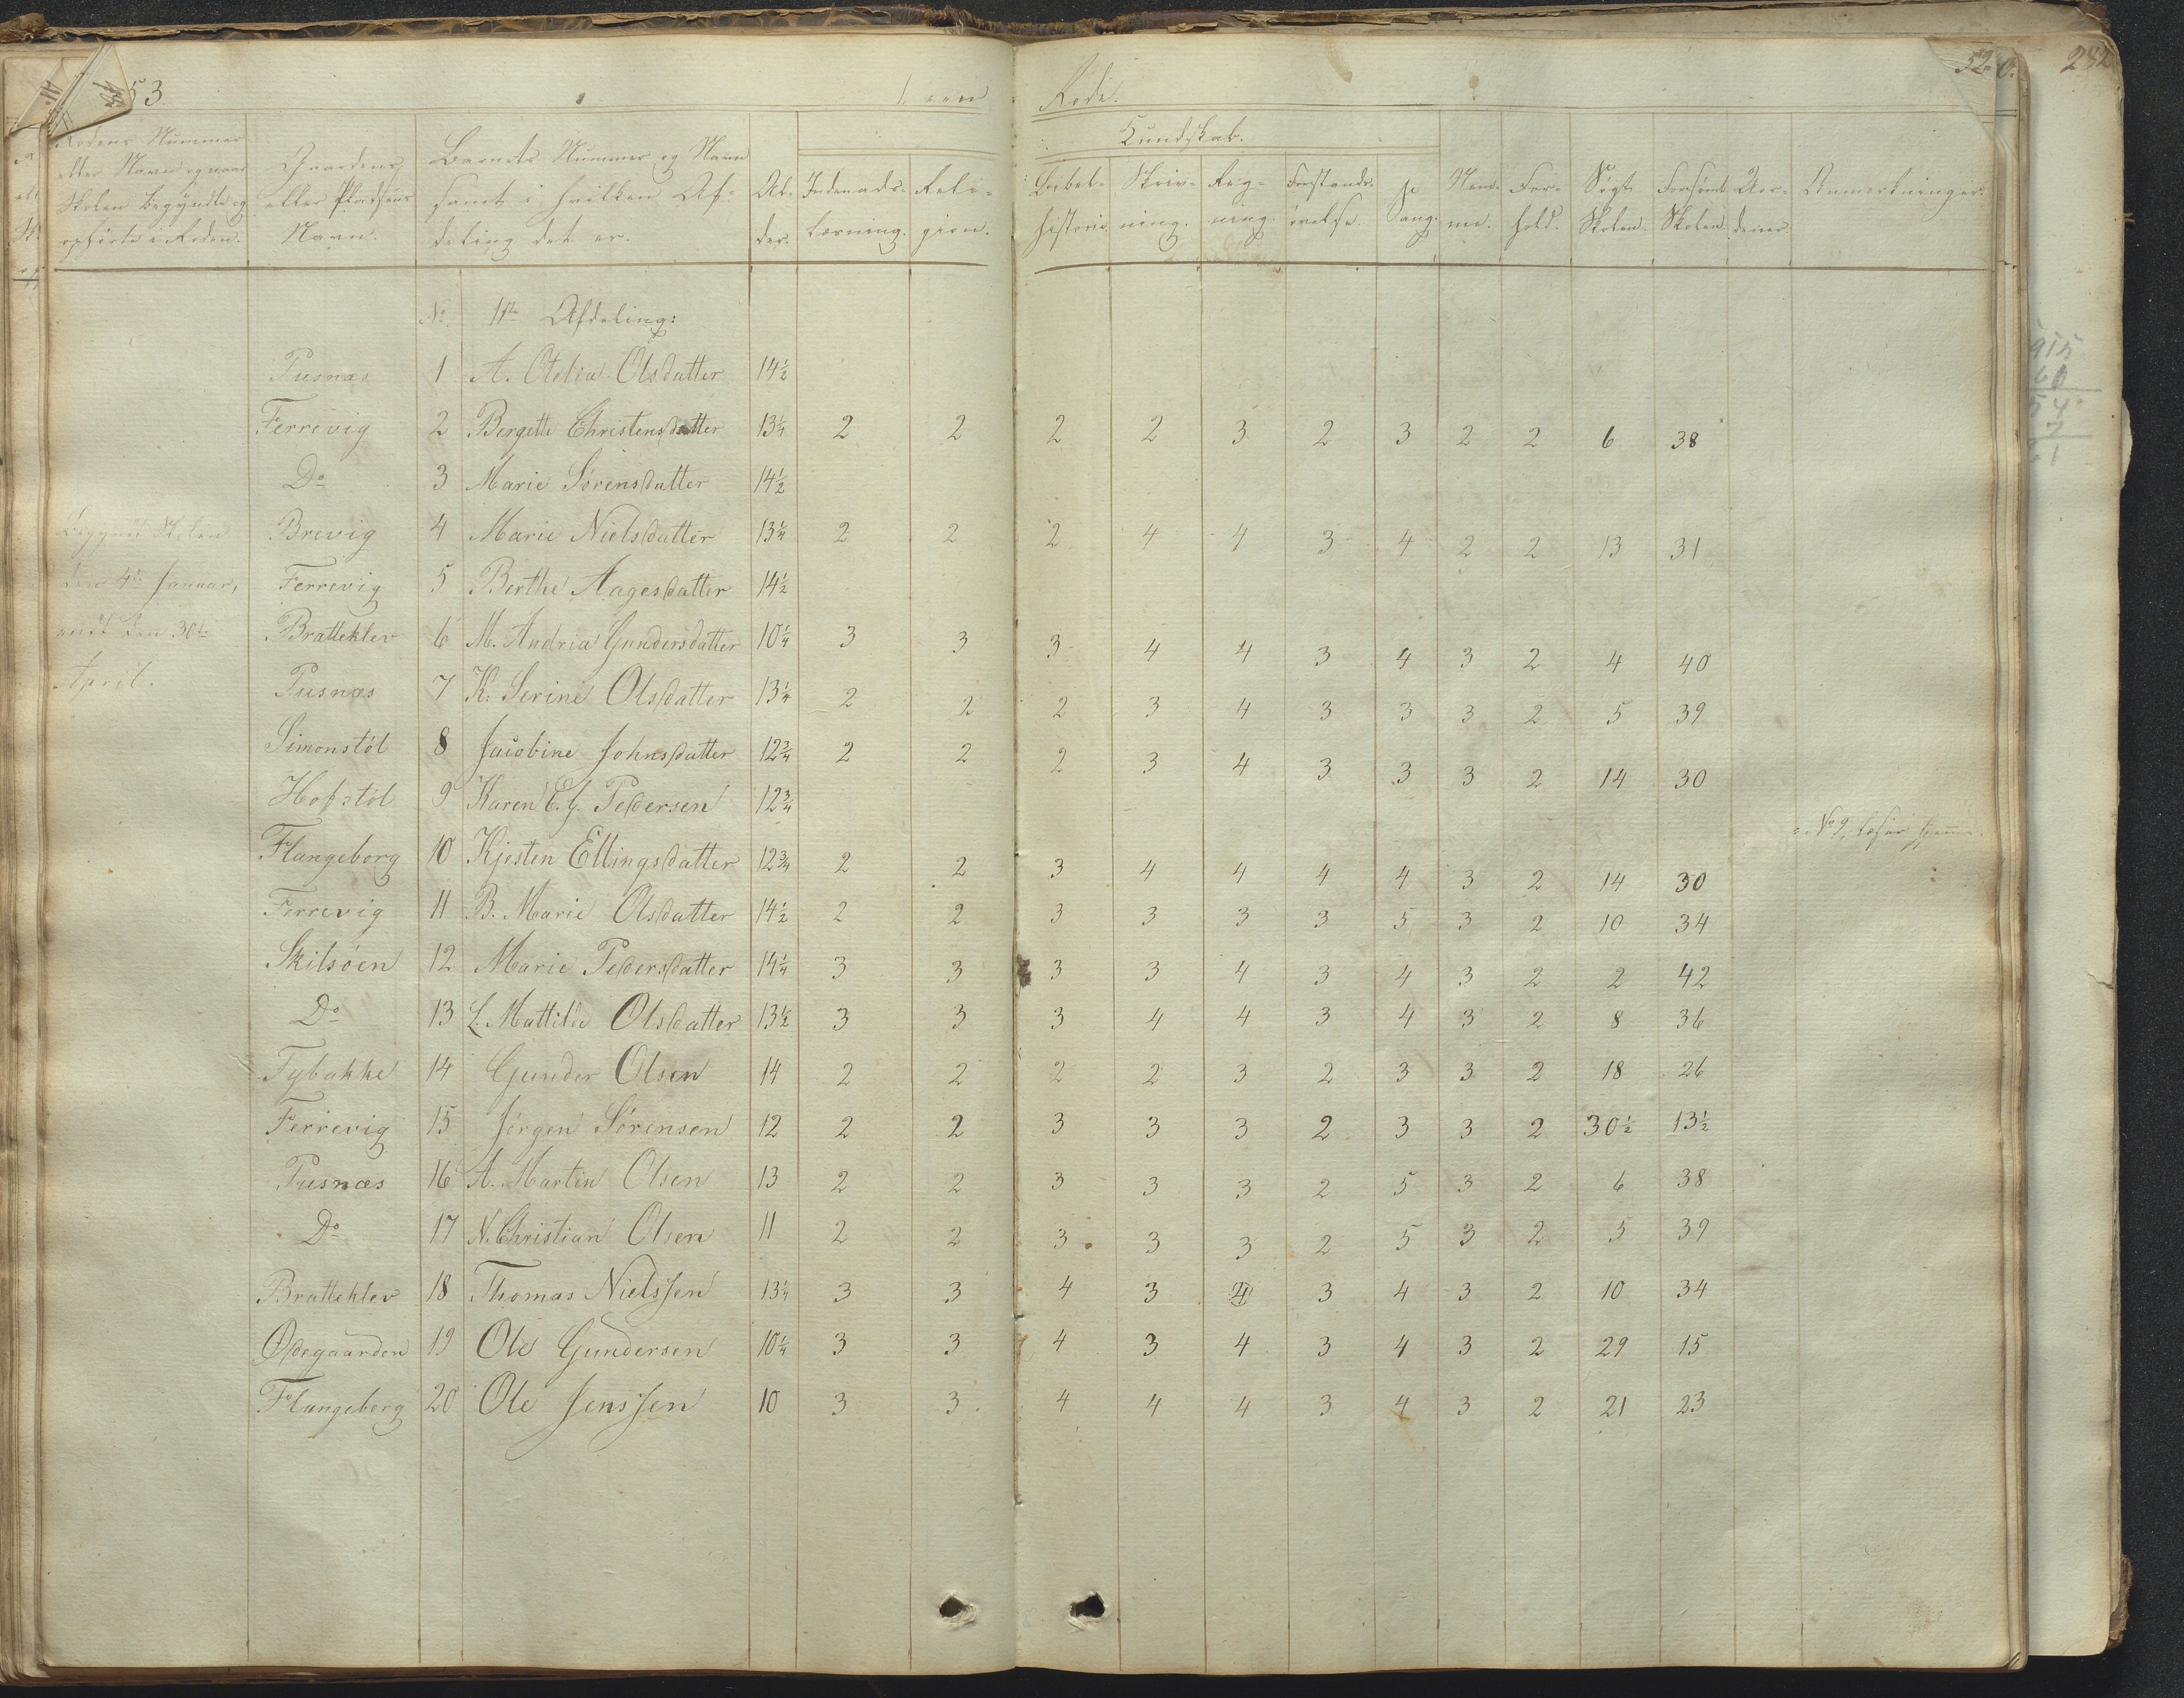 53.
Rode.
252
Rodens Nummer eller Navn og naar Skolen begyndte og ophørte i Roden.
Gaardens eller Pladsens Navn.
Barnets Nummer og Navn samt i hvilken Afdeling det er.
Alder.
Indenadslæsning.
Religion.
Kundskab.
Bibelhistorie.
Skrivning.
Regning.
Forstandsøvelse.
Sang.
Nemme.
Forhold.
Søgte Skolen.
Forsømt Skolen.
Anmerkninger.
No. 1ste Afdeling:
Pusnæs 1 A. Otelia Olsdatter 14½
Ferrevig 2 Bergette Christensdatter 13¼ 2 2 2 2 3 2 3 2 2 6 38
Do 3 Marie Sørensdatter 14½
Brevig 4 Marie Nielsdatter 13¼ 2 2 2 4 4 3 4 2 2 13 31
Begyndt Skolen den 4de Januar, endt den 30te April.
Ferrevig 5 Berthe Aagesdatter 14½
Bratteklev 6 M. Andrea Gundersdatter 10¼ 3 3 3 4 4 3 4 3 2 4 40
Pusnæs 7 K. Serine Olsdatter 13¼ 2 2 2 3 4 3 3 3 2 5 39
Simonstøl 8 Jacobine Johnsdatter 12¾ 2 2 2 3 4 3 3 3 2 14 30
Hofstøl 9 Karen E. G. Pedersen 12¾ No 9, læser hjemme.
Flangeborg 10 Kjesten Ellingsdatter 12¾ 2 2 3 4 4 4 4 3 2 14 30
Ferrevig 11 B. Marie Olsdatter 14½ 2 2 3 3 3 3 5 3 2 10 34
Skilsøen 12 Marie Pedersdatter 14¼ 3 3 3 3 4 3 4 3 2 2 42
Do 13 L. Mattilde Olsdatter 13½ 3 3 3 4 4 3 4 3 2 8 36
Tybakke 14 Gunder Olsen 14 2 2 2 2 3 2 3 3 2 18 26
Ferrevig 15 Jørgen Sørensen 12 2 2 3 3 3 2 3 3 2 30½ 13½
Pusnæs 16 A. Martin Olsen 13 2 2 3 3 3 2 5 3 2 6 38
Do 17 N. Christian Olsen 11 2 2 3 3 3 2 5 3 2 5 39
Bratteklev 18 Thomas Nielssen 13¼ 3 3 4 3 4 3 4 3 2 10 34
Ødegaarden 19 Ole Gundersen 10¼ 3 3 4 3 4 3 4 3 2 29 15
Flangeborg 20 Ole Jenssen 10 3 3 4 4 4 3 4 3 2 21 23